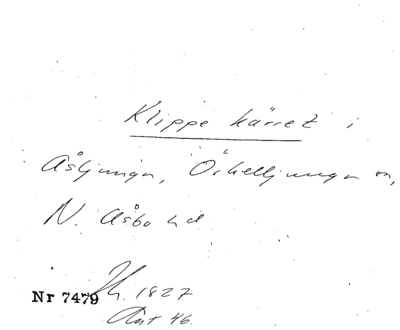 Klippe kärret i
Åsljunga, Örkelljunga sn,
N. Åsbo hd
Nr 7479 Jh. 1827
Ant 46.